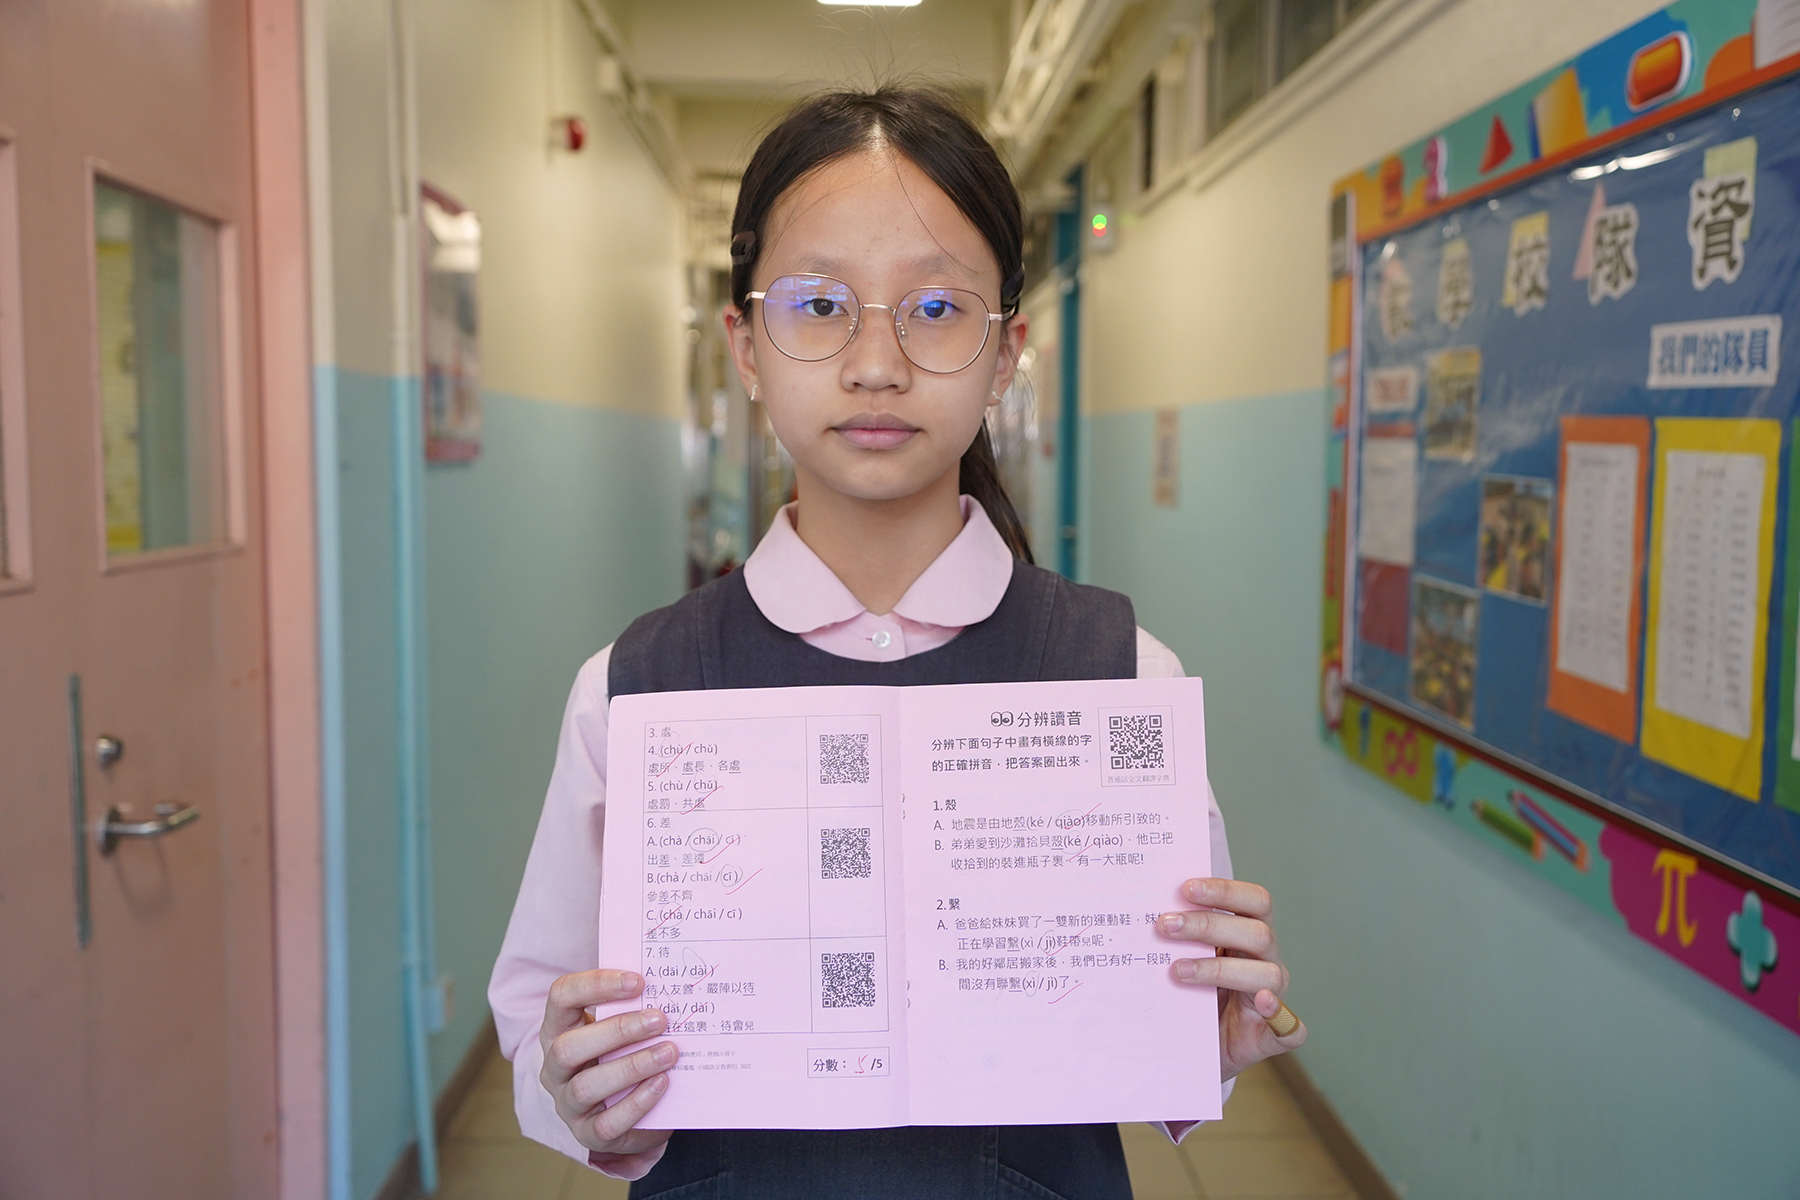 學校隊資
我們的隊員
3. 處
4. (chù / chǔ)
處所、處長、各處
5. (chù / chǔ)
處罰、共處
6. 差
A.(chà / chāi / cī )
出差、差遣
B.(chà / chāi / cī )
參差不齊
C.(chà / chāi / cī )
差不多
7. 待
A.(dāi / dài )
待人友善、嚴陣以待
B.(dāi / dài )
在這裏、待會兒
中國語文教育組 2022
分數： 5 /5
分辨讀音
分辨下面句子中畫有橫線的字
的正確拼音，把答案圈出來。
普通話全文翻譯字典
1. 殼
A. 地震是由地殼(ké / qiào)移動所引致的。
B. 弟弟愛到沙灘拾貝殼(ké / qiào)，他已把
收拾到的裝進瓶子裏，有一大瓶呢!
2. 繫
A. 爸爸給妹妹買了一雙新的運動鞋，妹
正在學習繫(xì / jì)鞋帶兒呢。
B. 我的好鄰居搬家後，我們已有好一段時
間沒有聯繫(xì / jì)了。